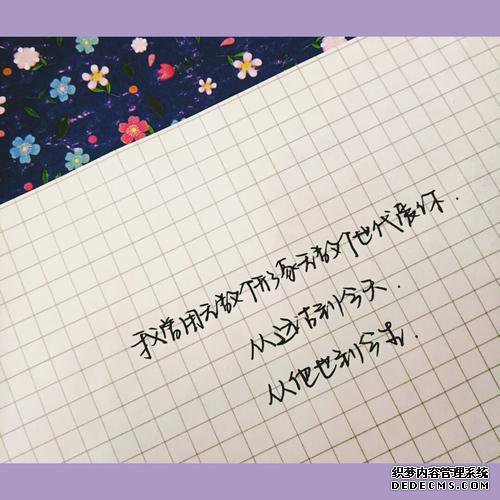 我常用无数个形象无数个世代爱你.
从远古到今天.
从他世到今生.
织梦内容管理系统
DEDECMS.COM